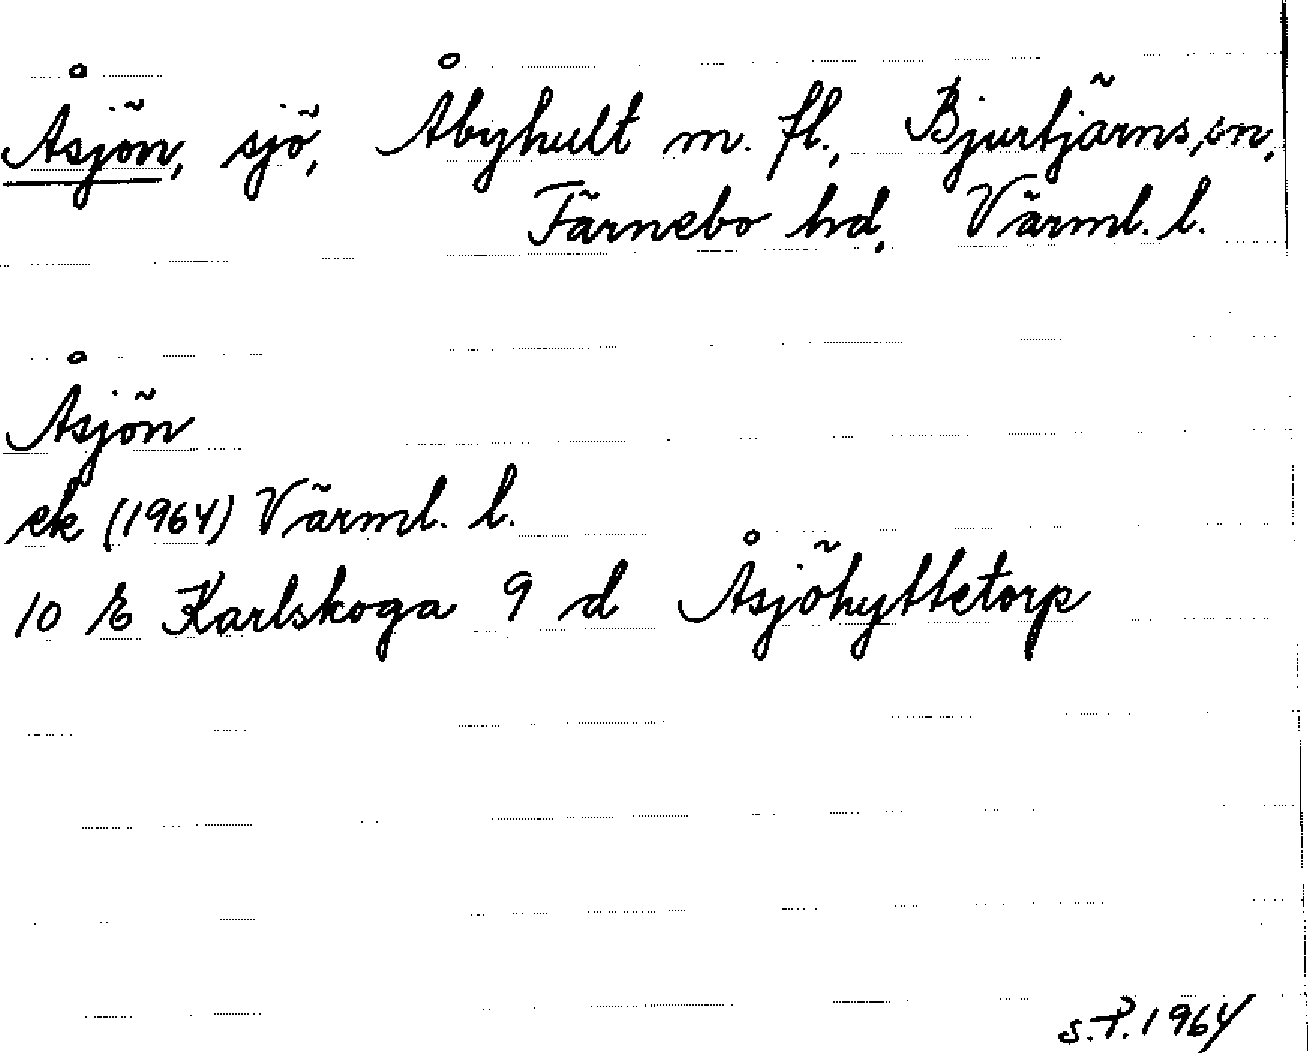 Åsjön, sjö, Åbyhult m. fl., Bjurtjärns sn,
Färnebo hd, Värml. l.
Åsjön
ek (1964) Värml. l.
10 E Karlskoga 9 d Åsjöhyttetorp
S.P. 1964